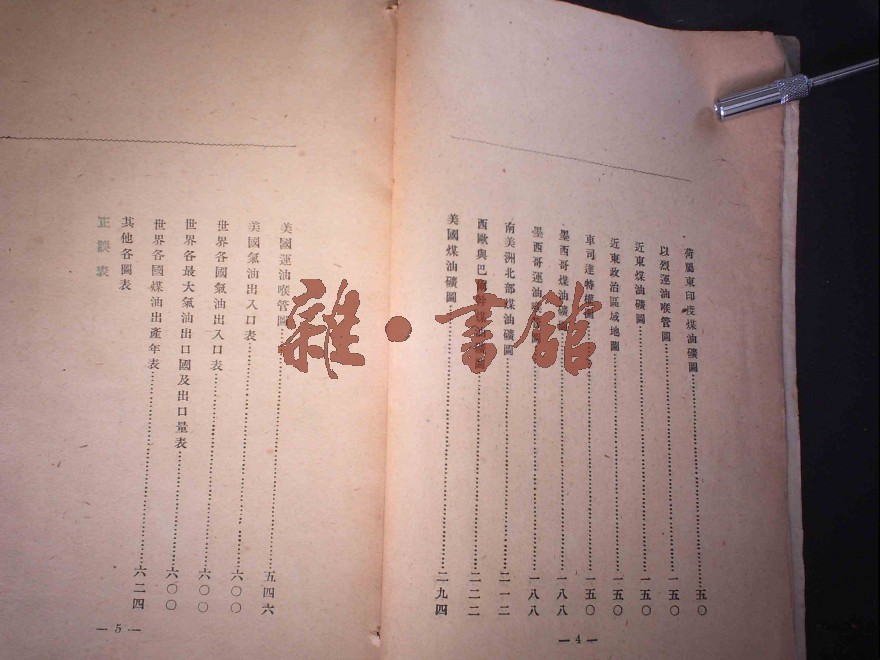 荷屬東印度煤油礦圖……五〇
以烈運油喉管圖……一五〇
近東煤油礦圖……一五〇
近東政治區域地圖……一五〇
車司達特圖……一五〇
墨西哥煤油礦圖……一八八
墨西哥運油喉管圖……一八八
南美洲北部煤油礦圖……二一二
西歐與巴油礦圖……二二二
美國煤油礦圖……二九四
— 4 —
美國運油喉管圖……五四六
美國氣油出入口表……六〇〇
世界各國氣油出入口表……六〇〇
世界各最大氣油出口國及出口量表……六〇〇
世界各國煤油出產年表……六二四
其他各圖表
正誤表
— 5 —
雜·書館